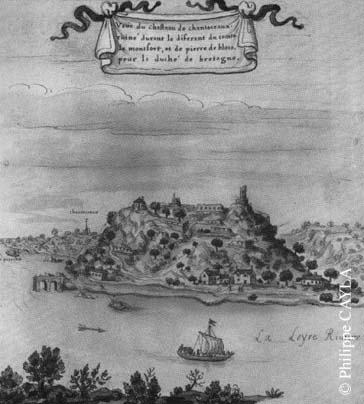 Vëue du chasteau de chantoceaux
ruiné durant le diferent du comte
de montfort, et de pierre de blois,
pour le duché de bretagne.
chantoceaux
La Loyre Riviere
© Philippe CAYLA